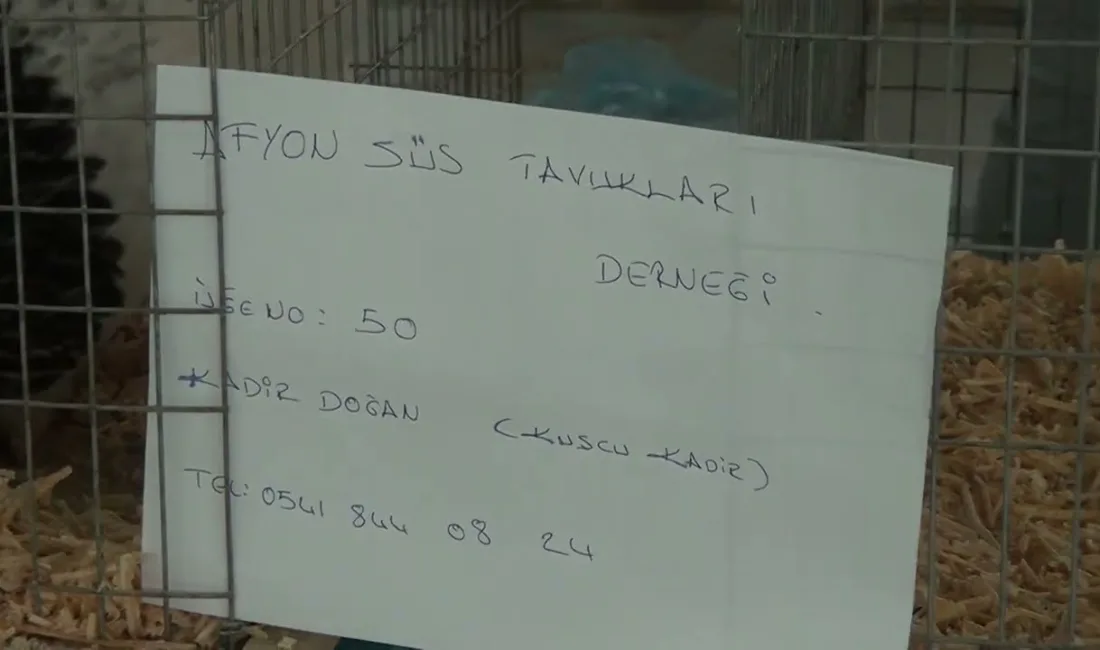 AFYON SÜS TAVUKLARI
DERNEĞİ.
ÜYE NO: 50
KADİR DOĞAN (KUSCU KADİR)
TEL: 0541 844 08 24